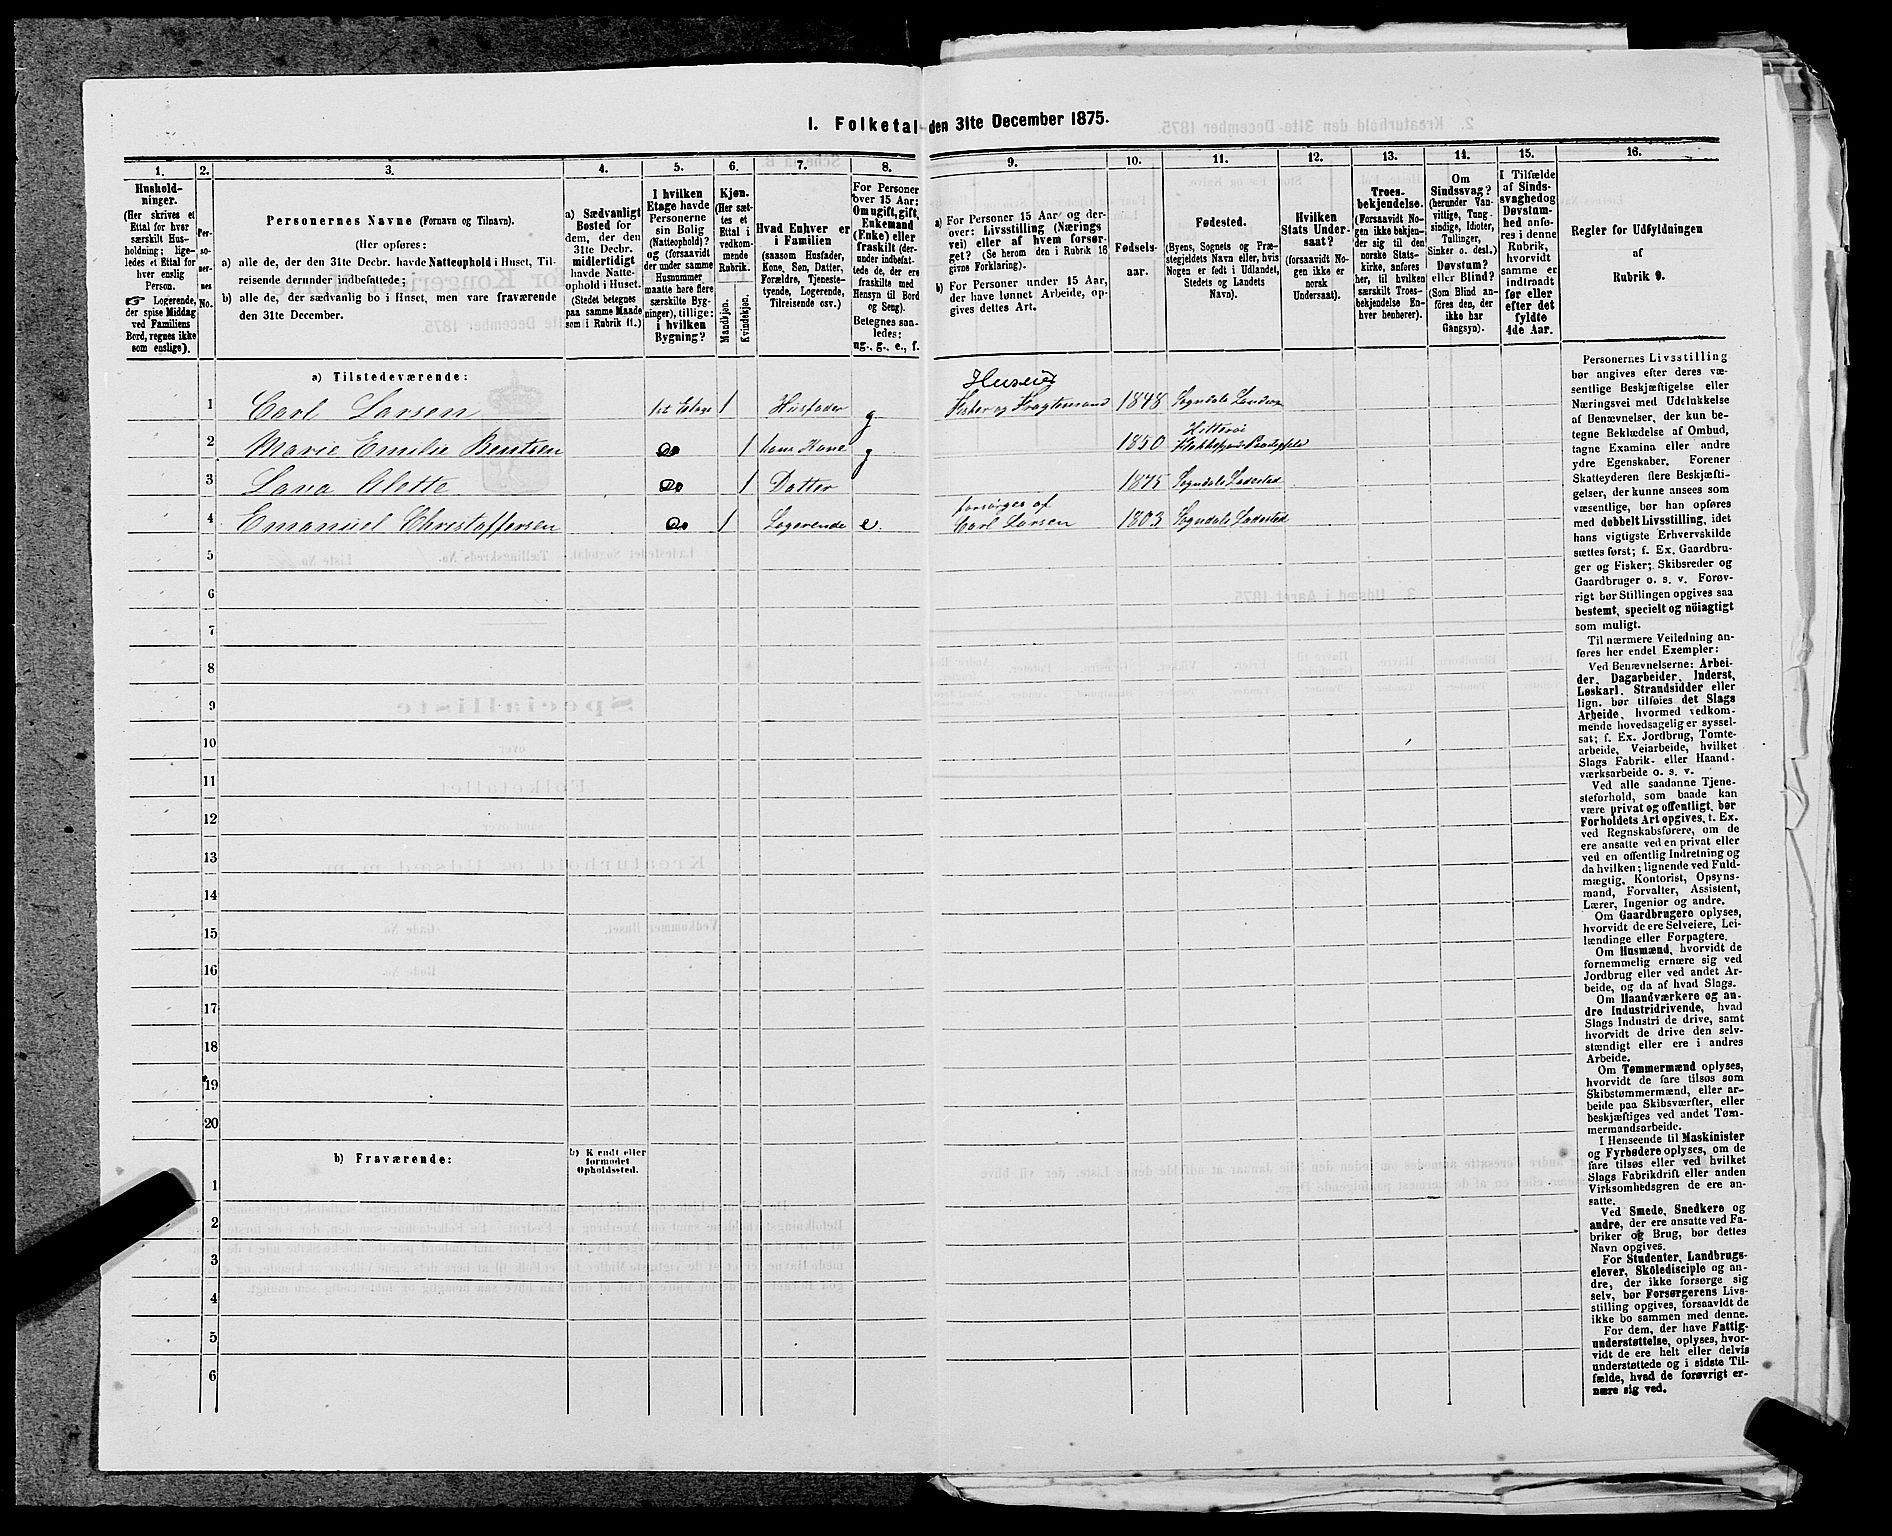 1. Folketal den 31te December 1875.
1. 2. 3. 4. 5. 6. 7. 8. 9. 10. 11. 12. 13. 14. 15. 16.
Hushold-
ninger.
(Her skrives et
Ettal for hver
særskilt Hus-
holdning; lige-
ledes et Ettal for
hver enslig
Person.
☞ Logerende,
der spise Middag
ved Familiens
Bord, regnes ikke
som enslige).
Per-
so-
ner-
nes
No.
Personernes Navne (Fornavn og Tilnavn).
(Her opføres:
a) alle de, der den 31te Decbr. havde Natteophold i Huset, Til-
reisende derunder indbefattede;
b) alle de, der sædvanlig bo i Huset, men vare fraværende
den 31te December.
a) Sædvanligt
Bosted for
dem, der den
31te Decbr.
midlertidigt
havde Natte-
ophold i Huset.
(Stedet betegnes
paa samme Maade
som i Rubrik 11.)
I hvilken
Etage havde
Personerne
sin Bolig
(Natteophold)?
og (forsaavidt
der under samme
Husnummer
maatte høre flere
særskilte Byg-
ninger), tillige:
i hvilken
Bygning?
Kjøn.
(Her sæt-
tes et
Ettal i
vedkom-
mende
Rubrik.
Mandkjøn.
Kvindekjøn.
Hvad Enhver er
i Familien
(saasom Husfader,
Kone, Søn, Datter,
Forældre, Tjeneste-
tyende, Logerende,
Tilreisende osv.)
For Personer
over 15 Aar:
Om ugift, gift,
Enkemand
(Enke) eller
fraskilt (der-
under indbefat-
tede de, der ere
fraskilte med
Hensyn til Bord
og Seng).
Betegnes saa-
ledes:
ug., g., e., f.
a) For Personer 15 Aar og der-
over: Livsstilling (Nærings
vei) eller af hvem forsør-
get? (Se herom den i Rubrik 16
givne Forklaring).
b) For Personer under 15 Aar,
der have lønnet Arbeide, op-
gives dettes Art.
Fødsels-
aar.
Fødested.
(Byens, Sognets og Præ-
stegjeldets Navn eller, hvis
Nogen er født i Udlandet,
Stedets og Landets
Navn).
Hvilken
Stats Under-
saat?
(forsaavidt No-
gen ikke er
norsk
Undersaat).
Troes-
bekjendelse.
(Forsaavidt No-
gen ikke bekjen-
der sig til den
norske Stats-
kirke, anføres
her, til hvilken
særskilt Troes-
bekjendelse En-
hver henhører).
Om
Sindssvag?
(herunder Van-
vittige, Tung-
sindige, Idioter,
Tullinger,
Sinker o. desl.)
Døvstum?
eller Blind?
(Som Blind an-
føres den, der
ikke har
Gangsyn).
I Tilfælde
af Sinds-
svaghed og
Døvstum-
hed anfø-
res i denne
Rubrik,
hvorvidt
samme er
indtraadt
før eller
efter det
fyldte
4de Aar.
Regler for Udfyldningen
af
Rubrik 9.
a) Tilstedeværende:
1 Carl Larsen 1st Etage 1 Husfader g Huseier Fisker og Fragtemand 1848 Sogndals Ladesp
2 Marie Emilie Bentsen Do 1 hans Kone g 1850 Hitterø Flekkefjords Præstegjeld
3 Lava Alette Do 1 Datter 1875 Sogndals Ladested
4 Emanuel Christoffersen Do 1 Logerende e. forsørges af Carl Larsen 1803 Sogndals Ladested
5
6
7
8
9
10
11
12
13
14
15
16
17
18
19
20
b) Fraværende:
b) Kendt eller
formodet
Opholdssted.
1
2
3
4
5
6
Personernes Livsstilling
bør angives efter deres væ-
sentlige Beskjæftigelse eller
Næringsvei med Udelukkelse
af Benævnelser, der kun be-
tegne Beklædelse af Ombud,
tagne Examina eller andre
ydre Egenskaber. Forener
Skatteyderen flere Beskjæfti-
gelser, der kunne ansees som
væsentlige, bør han opføres
med dobbelt Livsstilling, idet
hans vigtigste Erhvervskilde
sættes først; f. Ex. Gaardbru-
ger og Fisker; Skibsreder og
Gaardbruger o. s. v. Forøv-
rigt bør Stillingen opgives saa
bestemt, specielt og nöiagtigt
som muligt.
Til nærmere Veiledning an-
føres her endel Exempler:
Ved Benævnelserne: Arbei-
der, Dagarbeider, Inderst,
Løskarl, Strandsidder eller
lign. bør tilføies det Slags
Arbeide, hvormed vedkom-
mende hovedsagelig er syssel-
sat; f. Ex. Jordbrug, Tomte-
arbeide, Veiarbeide, hvilket
Slags Fabrik- eller Haand-
værksarbeide o. s. v.
Ved alle saadanne Tjene-
steforhold, som baade kan
være privat og offentligt, bør
Forholdets Art opgives, t. Ex.
ved Regnskabsførere, om de
ere ansatte ved en privat eller
ved en offentlig Indretning og
da hvilken; lignende ved Fuld-
mægtig, Kontorist, Opsyns-
mand, Forvalter, Assistent,
Lærer, Ingeniør og andre.
Om Gaardbrugere oplyses,
hvorvidt de ere Selveiere, Lei-
lændinge eller Forpagtere.
Om Husmænd, hvorvidt de
fornemmelig ernære sig ved
Jordbrug eller ved andet Ar-
beide, og da af hvad Slags.
Om Haandværkere og an-
dre Industridrivende, hvad
Slags Industri de drive, samt
hvorvidt de drive den selv-
stændigt eller ere i andres
Arbeide.
Om Tømmermænd oplyses,
hvorvidt de fare tilsøs som
Skibstømmermænd, eller ar-
beide paa Skibsværfter, eller
beskjæftiges ved andet Tøm-
mermandsarbeide.
I Henseende til Maskinister
og Fyrbødere oplyses, om de
fare tilsøs eller ved hvilket
Slags Fabrikdrift eller anden
Virksomhedsgren de ere an-
satte.
Ved Smede, Snedkere og
andre, der ere ansatte ved Fa-
briker og Brug, bør dettes
Navn opgives.
For Studenter, Landbrugs-
elever, Skoledisciple og an-
dre, der ikke forsørge sig
selv, bør Forsørgerens Livs-
stilling opgives, forsaavidt de
ikke bo sammen med denne.
For dem, der have Fattig-
understøttelse, oplyses, hvor-
vidt de ere helt eller delvis
understøttede og i sidste Til-
fælde, hvad de forøvrigt er-
nære sig ved.